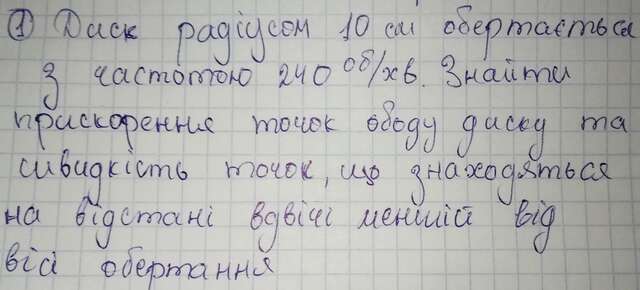 ① Диск радіусом 10 см обертається
з частотою 240 об/хв. Знайти
прискорення точок ободу диску та
швидкість точок, що знаходяться
на відстані вдвічі меншій від
вісі обертання